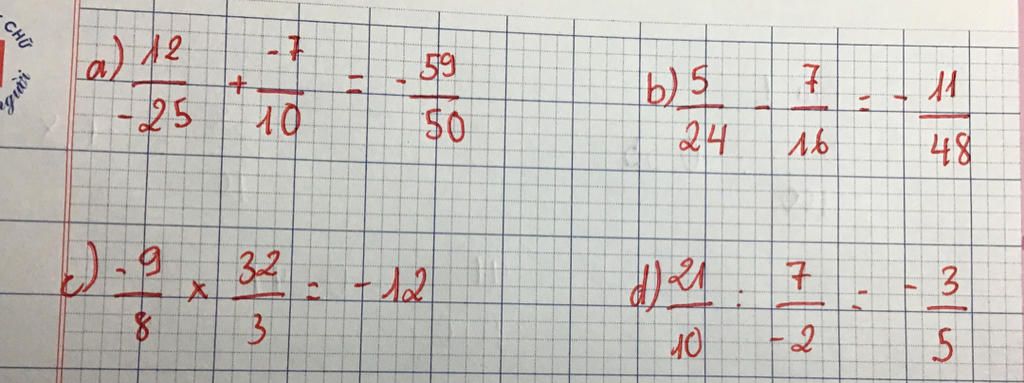 CHỮ
a) 12/-25 + -7/10 = - 59/50
b) 5/24 - 7/16 = - 11/48
c) -9/8 x 32/3 = - 12
d) 21/10 : 7/-2 = - 3/5